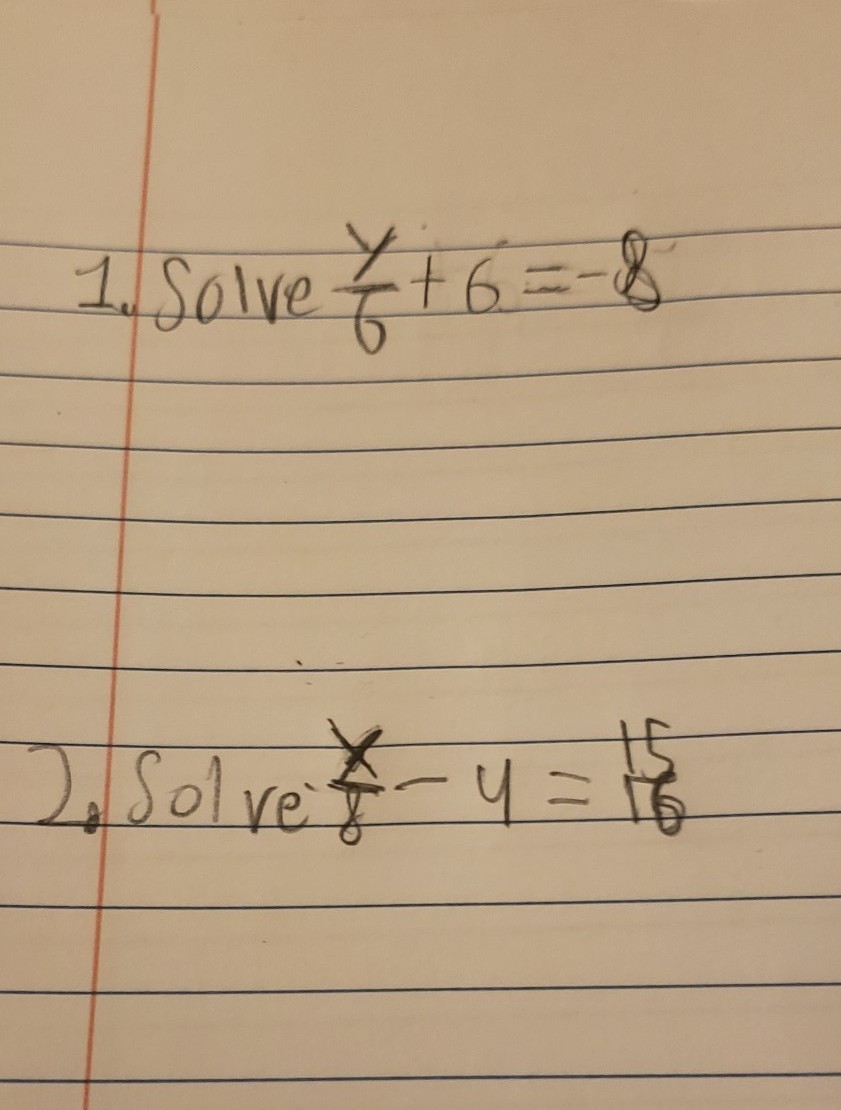 1. Solve y/6 + 6 = -8
2. Solve x/8 - 4 = 15/16